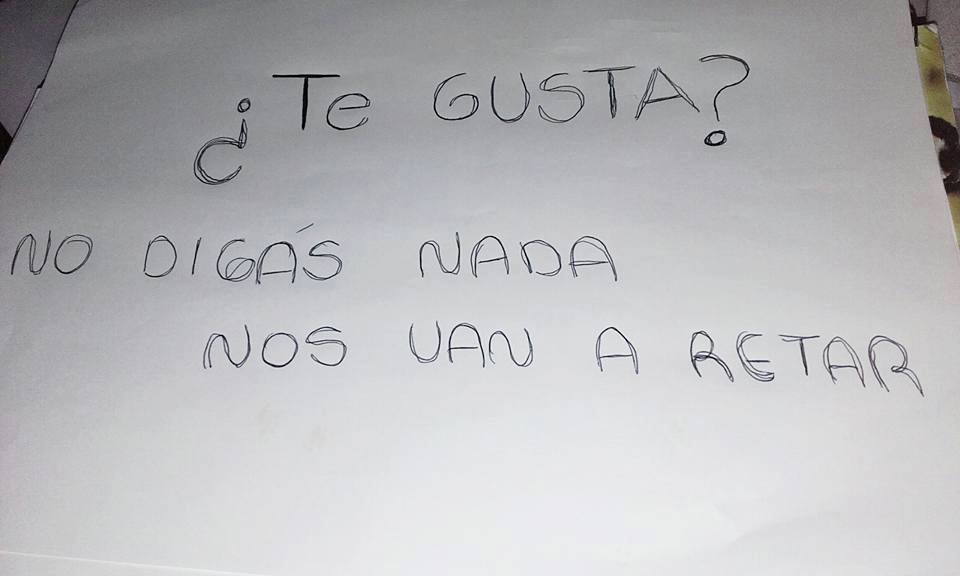 ¿Te GUSTA?
NO DIGÁS NADA
NOS VAN A RETAR